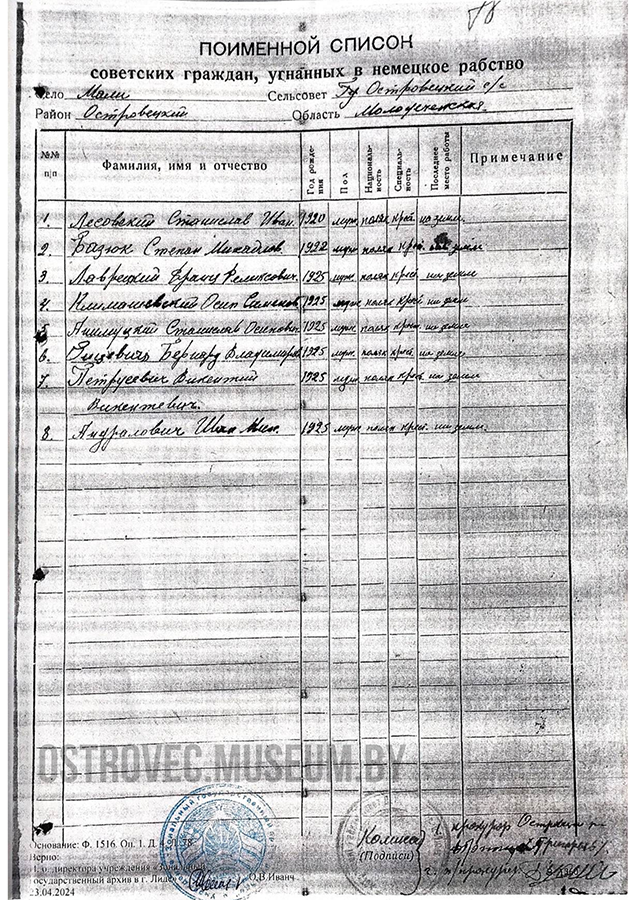 78
ПОИМЕННОЙ СПИСОК
советских граждан, угнанных в немецкое рабство
Село Мали Сельсовет Островецкий с/с
Район Островецкий Область Молодечненская
№№ п/п Фамилия, имя и отчество Год рождения Пол Национальность Специальность Последнее место работы Примечание
1. Лесовский Станислав Иван. 1920 муж. поляк крест. на земл.
2. Базюк Степан Михайлов. муж. поляк крест. земл.
3. Лаврецкий Франц Феликсович. 1925 муж. поляк крест. на земл
4. Осип 1925 муж. поляк крест. на земл
5. Станислав Осипович 1925 муж. поляк крест. на земл
6. Бернард Владимиров. 1925 муж. поляк крест. на земл.
7. Петрусевич Викентий 1925 муж. поляк крест. на земл
Викентевич.
8. Иван Мих. 1925 муж. поляк крест. на земл.
OSTROVEC.MUSEUM.BY
Основание: Ф. 1516. Оп. 1. Д. 4. Л. 78
Верно: (Подписи) прокурор
И. о. директора учреждения «Зональный
государственный архив в г. Лиде» О.В.Иванч
23.04.2024